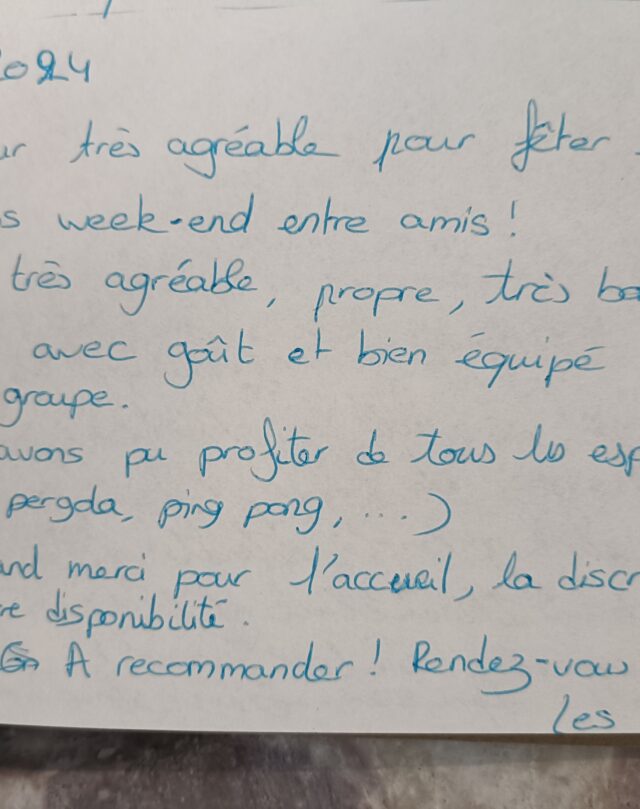 2024
très agréable pour fêter
week-end entre amis !
très agréable, propre, très
avec goût et bien équipé
groupe.
avons pu profiter de tous les esp
pergola, ping pong, ....)
merci pour l'accueil, la discr
disponibilité.
A recommander ! Rendez-vous
les